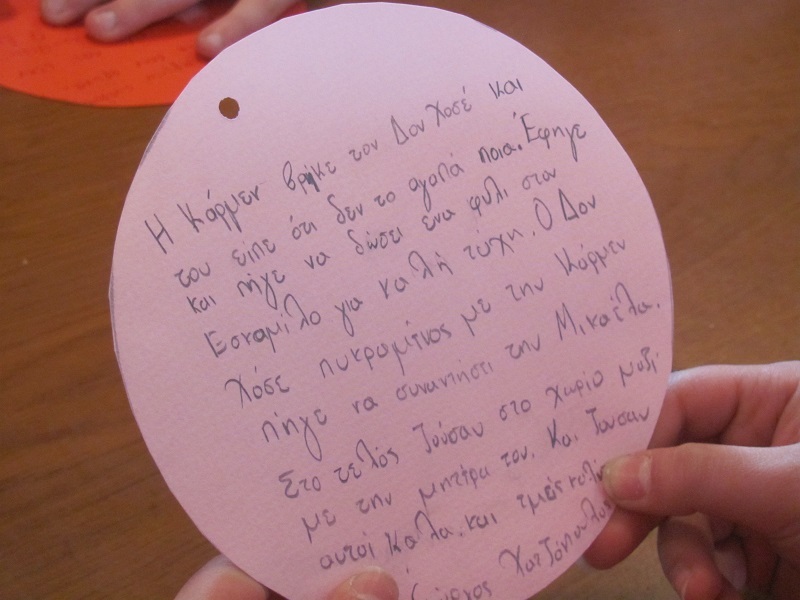 Η Κάρμεν βρήκε τον Δον Χοσέ και
του είπε ότι δεν το αγαπά ποια. Έφηγε
και πήγε να δώσει ένα φυλι στον
Εσκαμίλο για καλή τύχη. Ο Δον
Χόσε πικραμένος με την Κάρμεν
πήγε να συναντήσει την Μικαέλα.
Στο τελός ζούσαν στο χωριο μαζί
με την μητέρα του. Και ζουσαν
αυτοί καλα και εμείς